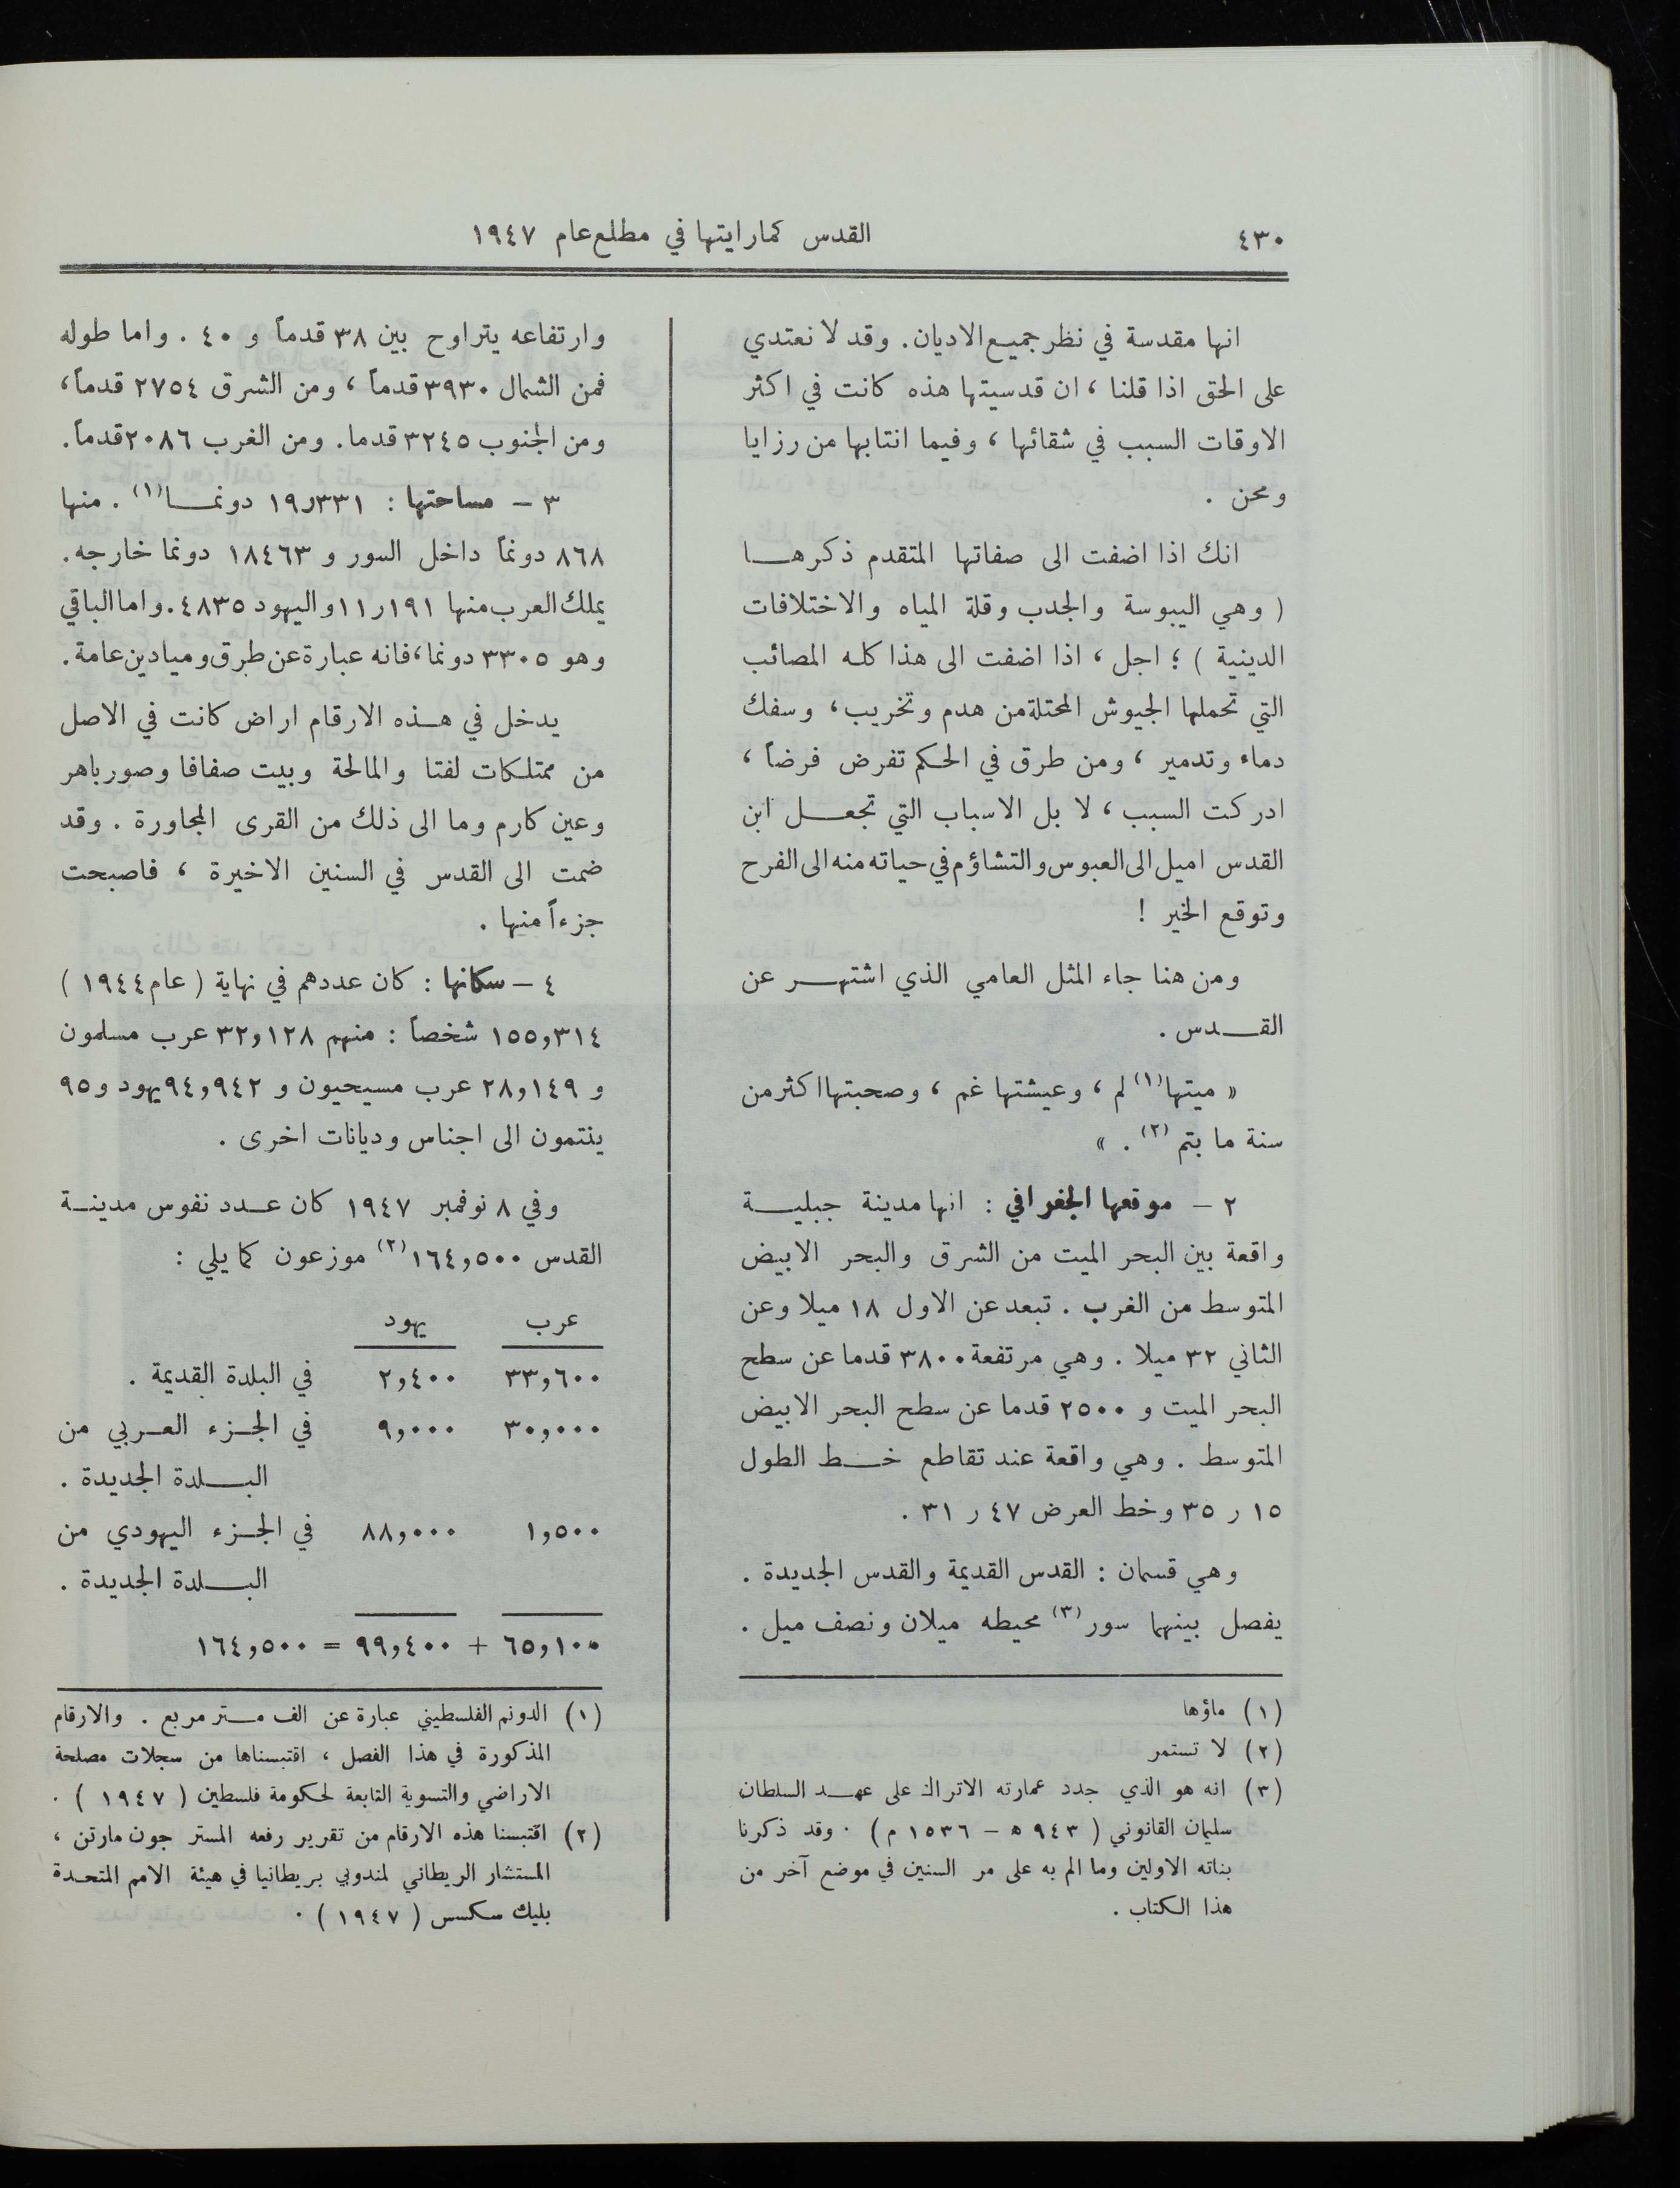 ٤٣٠
القدس كما رايتها في مطلع عام ١٩٤٧
انها مقدسة في نظر جميع الاديان. وقد لا نعتدي
على الحق اذا قلنا ، ان قدسيتها هذه كانت في اكثر
الاوقات السبب في شقائها ، وفيما انتابها من رزايا
ومحن .
انك اذا اضفت الى صفاتها المتقدم ذكرهـا
( وهي اليبوسة والجدب وقلة المياه والاختلافات
الدينية ) ؛ اجل ، اذا اضفت الى هذا كله المصائب
التي تحملها الجيوش المحتلة من هدم وتخريب ، وسفك
دماء وتدمير ، ومن طرق في الحكم تفرض فرضاً ،
ادركت السبب ، لا بل الاسباب التي تجعـل ابن
القدس اميل الى العبوس والتشاؤم في حياته منه الى الفرح
وتوقع الخير !
ومن هنا جاء المثل العامي الذي اشتهـر عن
القـدس .
« ميتها(١) لم ، وعيشتها غم ، وصحبتها اكثر من
سنة ما بتم (٢) . »
٢ – موقعها الجغرافي : انها مدينة جبليـة
واقعة بين البحر الميت من الشرق والبحر الابيض
المتوسط من الغرب . تبعد عن الاول ١٨ ميلا وعن
الثاني ٣٢ ميلا . وهي مرتفعة ٣٨٠٠ قدما عن سطح
البحر الميت و ٢٥٠٠ قدما عن سطح البحر الابيض
المتوسط . وهي واقعة عند تقاطع خـط الطول
١٥ ر ٣٥ وخط العرض ٤٧ ر ٣١ .
وهي قسمان : القدس القديمة والقدس الجديدة .
يفصل بينهما سور (٣) محيطه ميلان ونصف ميل .
(١) ماؤها
(٢) لا تستمر
(٣) انه هو الذي جدد عمارته الاتراك على عهـد السلطان
سليمان القانوني ( ٩٤٣ ه – ١٥٣٦ م ) . وقد ذكرنا
بناته الاولين وما الم به على مر السنين في موضع آخر من
هذا الكتاب .
وارتفاعه يتراوح بين ٣٨ قدماً و ٤٠ . واما طوله
فمن الشمال ٣٩٣٠ قدماً ، ومن الشرق ٢٧٥٤ قدماً ،
ومن الجنوب ٣٢٤٥ قدما. ومن الغرب ٢٠٨٦ قدماً.
٣ – مساحتها : ١٩٫٣٣١ دونمـا(١) . منها
٨٦٨ دونماً داخل السور و ١٨٤٦٣ دونما خارجه .
يملك العرب منها ١١٫١٩١ واليهود ٤٨٣٥ . واما الباقي
وهو ٣٣٠٥ دونما، فانه عبارة عن طرق وميادين عامة .
يدخل في هـذه الارقام اراض كانت في الاصل
من ممتلكات لفتا والمالحة وبيت صفافا وصور باهر
وعين كارم وما الى ذلك من القرى المجاورة . وقد
ضمت الى القدس في السنين الاخيرة ، فاصبحت
جزءاً منها .
٤ – سكانها : كان عددهم في نهاية ( عام ١٩٤٤ )
١٥٥,٣١٤ شخصاً : منهم ٣٢,١٢٨ عرب مسلمون
و ٢٨,١٤٩ عرب مسيحيون و ٩٤,٩٤٢ يهود و ٩٥
ينتمون الى اجناس وديانات اخرى .
وفي ٨ نوفمبر ١٩٤٧ كان عـدد نفوس مدينـة
القدس ١٦٤,٥٠٠ (٢) موزعون كما يلي :
عرب يهود
٣٣,٦٠٠ ٢,٤٠٠ في البلدة القديمة .
٣٠,٠٠٠ ٩,٠٠٠ في الجـزء العـربي من
البـلدة الجديدة .
١,٥٠٠ ٨٨,٠٠٠ في الجـزء اليهودي من
البـلدة الجديدة .
٦٥,١٠٠ + ٩٩,٤٠٠ = ١٦٤,٥٠٠
(١) الدونم الفلسطيني عبارة عن الف مـتر مربع . والارقام
المذكورة في هذا الفصل ، اقتبسناها من سجلات مصلحة
الاراضي والتسوية التابعة لحكومة فلسطين ( ١٩٤٧ ) .
(٢) اقتبسنا هذه الارقام من تقرير رفعه المستر جون مارتن ،
المستشار الريطاني لمندوبي بريطانيا في هيئة الامم المتحـدة
بليك سكسس ( ١٩٤٧ ) .